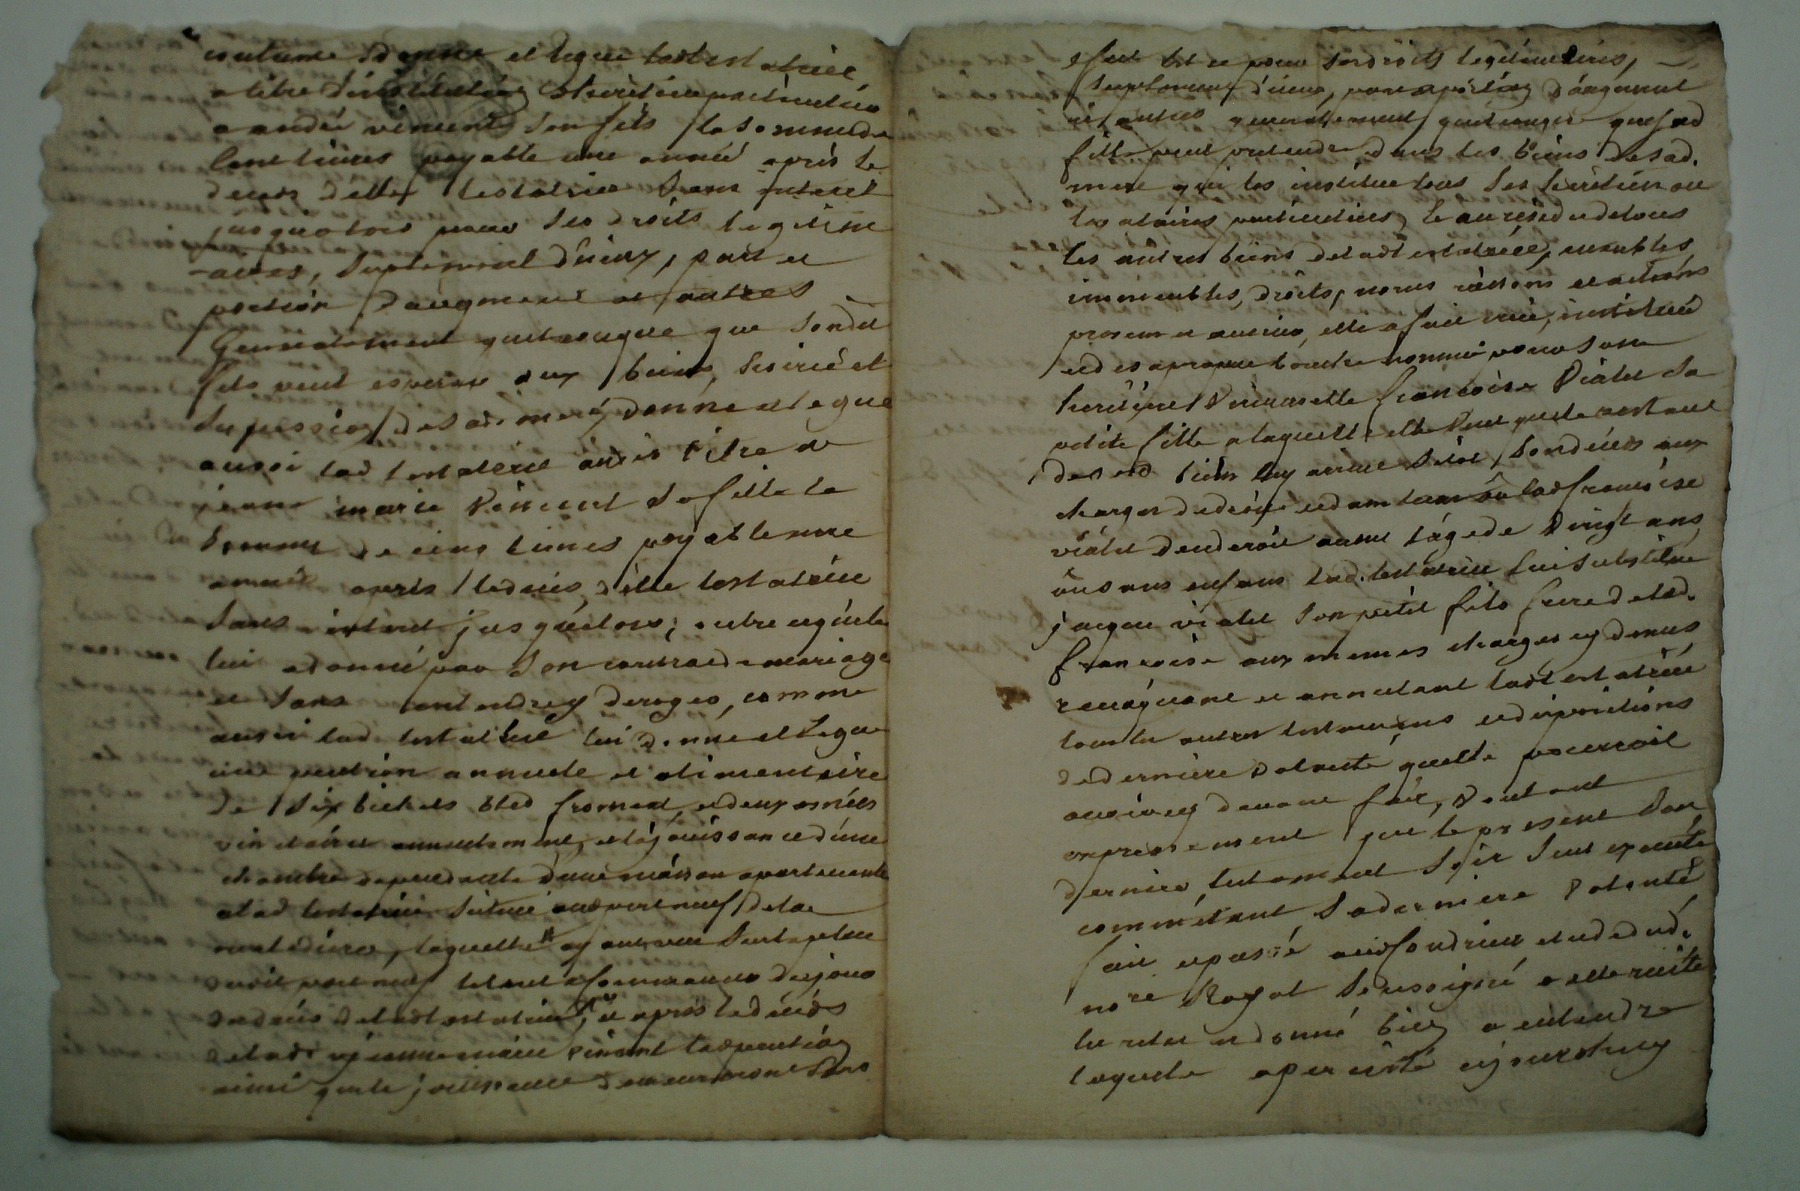 coutume donne et legue lad testatrice
a titre d'institution et heritiere particuliere
a andré vincent son fils la somme de
Cent livres payable une année après le
deces d'elle testatrice sans interet
jusqu'alors pour ses droits legitim
-aires, suplement d'iceux, part et
portion d'augment et autres
Generalement quelconque que sondit
fils peut esperer aux biens, hoirie et
supession de sad. mere, donne et legue
aussi lad testatrice audit titre a
jeane marie Vincent sa fille la
somme de cens livres payable une
année après le deces d'elle testatrice
sans interet jusqu'alors; outre ce qu'elle
lui a donné par son contrat de mariage
et sans entendre y deroger, comme
aussi lad. testatrice lui donne et legue
une pention annuele et alimentaire
de six bichets bled froment, et deux asnées
vin claires annuelement, et la jouissance d'une
chambre dependante d'une maison apartenante
a lad testatrice située au port neuf de la
laquelle
port neuf le tout a commancer du jour
du deces de lad testatrice, et après le deces
de lad jeanne marie vincent lad pention
ainsi que la jouissance demeureront
et ce pour ses droits legitimaires,
suplement d'iceux, part et portion d'augment
et autres generallement quelconque que sad
fille peut pretendre dans les biens de sad.
mere qui les institue tous ses heritiers ou
legataires particuliers, et au residu de tous
les autres biens de lad testatrice, meubles
immeubles, droits, noms raisons et actions
presens et avenir, elle a fait, créé, institué
et de sa propre bouche nommé pour son
heritiere françoise Vialet sa
petite fille a laquelle elle veut que le restant
de sesd biens luy arrive sitot son deces aux
charges de droit et dam lad françoise
vialet decederoit avant l'age de Vingt ans
ou sans enfans lad. testatrice lui substitue
jacque vialet son petit fils frere de lad.
françoise aux memes charges cy dessus
revoquant et annulant lad testatrice
tous les autres testamens et dispositions
de derniere volonté qu'elle pourroit
avoir cy devant fait, Voulant
expressement que le present son
dernier testament soit seul executé
comme étant sa derniere Volonté
fait et passé aud
no.re Royal soussigné a elle recité
lu relu et donné bien a entendre
laquelle a persisté ce jourdhuy